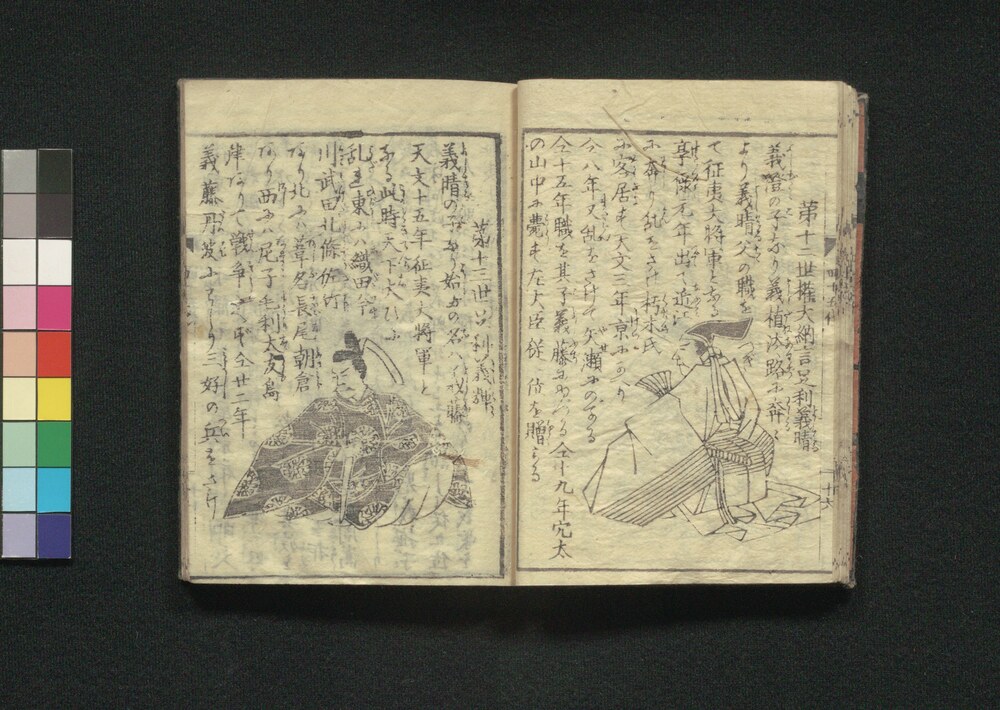 第十二世権大納言足利義晴
義澄の子なり義植淡路に奔る
より義晴父の職を つぎ
て征夷大将軍となる
享禄元年出て近江
に奔り乱をさけ朽木氏
に客居す天文三年京にかへり
仝八年又乱をさけて矢瀬にのがる
仝十五年職を其子義藤にゆづり仝十九年穴太
の山中に薨す左大臣従 位を贈らる
第十三世足利義輝
義晴の子なり始めの名ハ義藤
天文十五年征夷大将軍と
なる此時天下大ひに
乱れ東にハ織田今
川武田北條
なり北にハ葦名長尾朝倉
なり西にハ尼子毛利大友島
津なりて戦争 仝廿二年
義藤丹波にはしり三好の兵をさけ